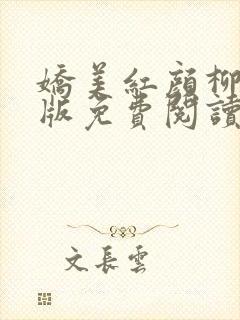 嬌美紅顏柳
版免費閱讀
文長雲